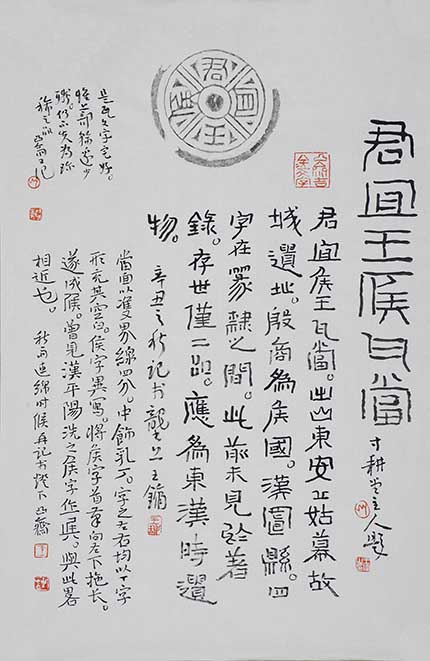 君宜王侯瓦當
寸耕堂主人題
君宜侯王瓦當。出山東安丘姑幕故
城遺址。殷商為侯國。漢置縣。四
字在篆隸之間。此前未見於著
錄。存世僅二品。應為東漢時遺
物。
辛丑之秋記於 王鏞
當面以雙界線四分。中飾乳丁。字之左右均以丁字
形充其空白。侯字異寫。將侯字首筆向左下拖長。
遂成侯。曾見漢平陽洗之侯字作 與此略
相近也。 秋雨連綿時候再記於燈下 凸齋
君宜侯王
是瓦文字完好。
惟上部 邊少
殘。仍不失為珍